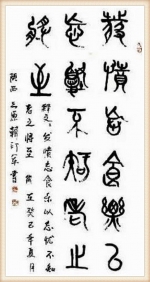 發憤忘食樂以
忘憂不知老之
將至
釋文發憤忘食樂以忘憂不知
老之將至 癸巳年夏月
陝西三原 書